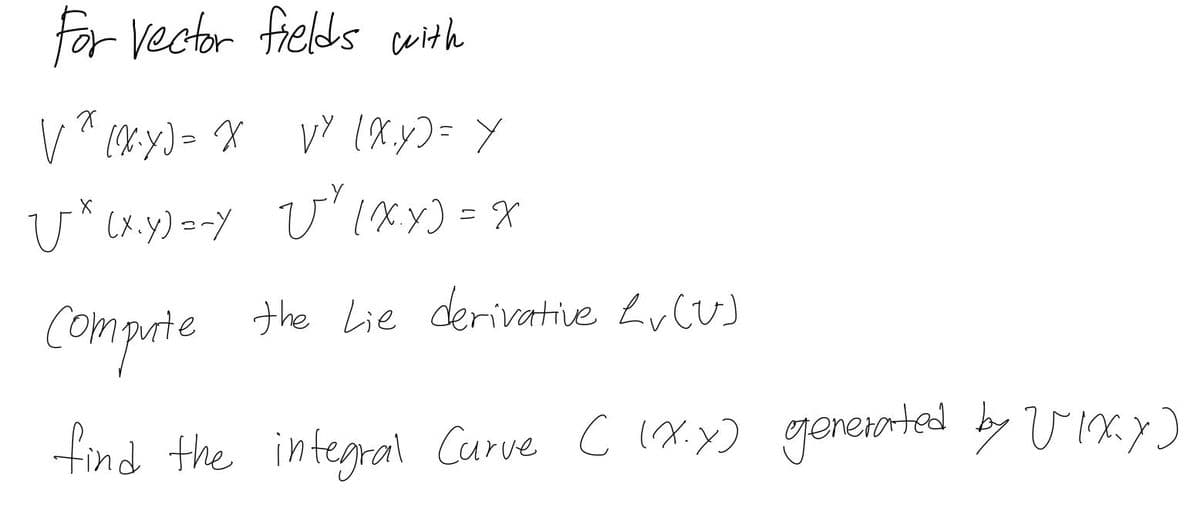 For Vector fields with
V^x (x,y) = x V^y (x,y) = y
U^x (x,y) = -y U^y (x,y) = x
Compute the Lie derivative L_v(U)
find the integral Curve C (x,y) generated by U(x,y)